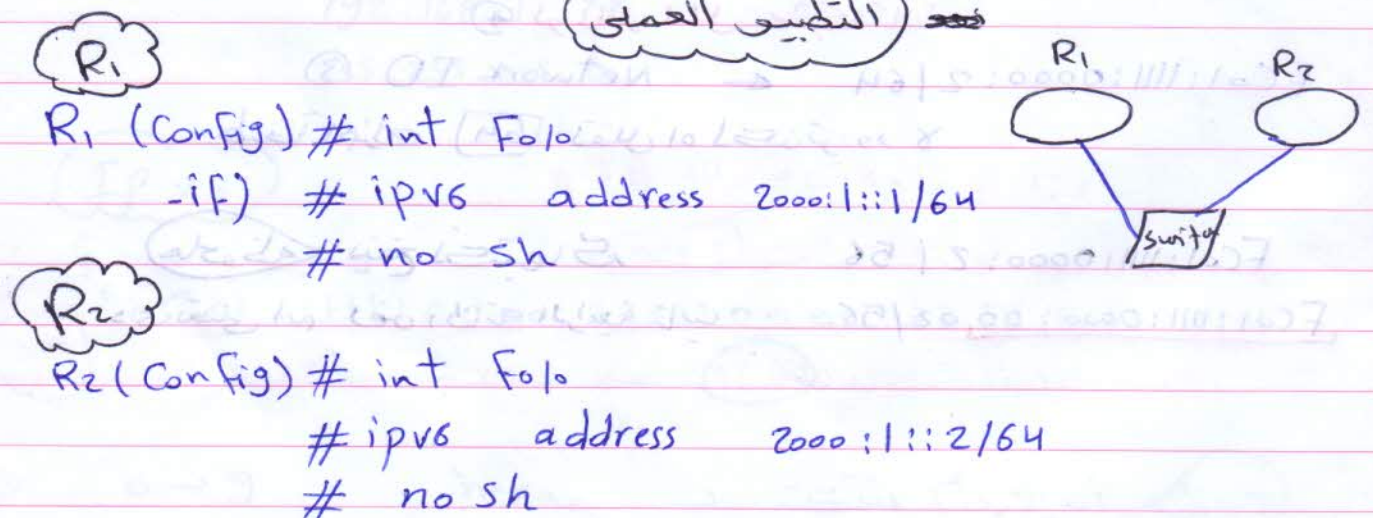 (التطبيق العملي)
R1
R1 (Config) # int F0/0
-if) # ipv6 address 2000:1::1/64
# no sh
R2
R2 (Config) # int F0/0
# ipv6 address 2000:1::2/64
# no sh
R1 R2